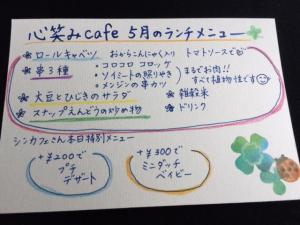 心笑みcafe 5月のランチメニュー
ロールキャベツ おからこんにゃく入り トマトソースで
串3種
・コロコロ コロッケ
・ソイミートの照りやき
・メンジンの串カツ
まるでお肉!!
すべて植物性です
大豆とひじきのサラダ
雑穀米
スナップえんどうの炒め物
ドリンク
シンカフェさん本日特別メニュー
+¥200で
プチ
デザート
+¥300で
ミニダッチ
ベイビー